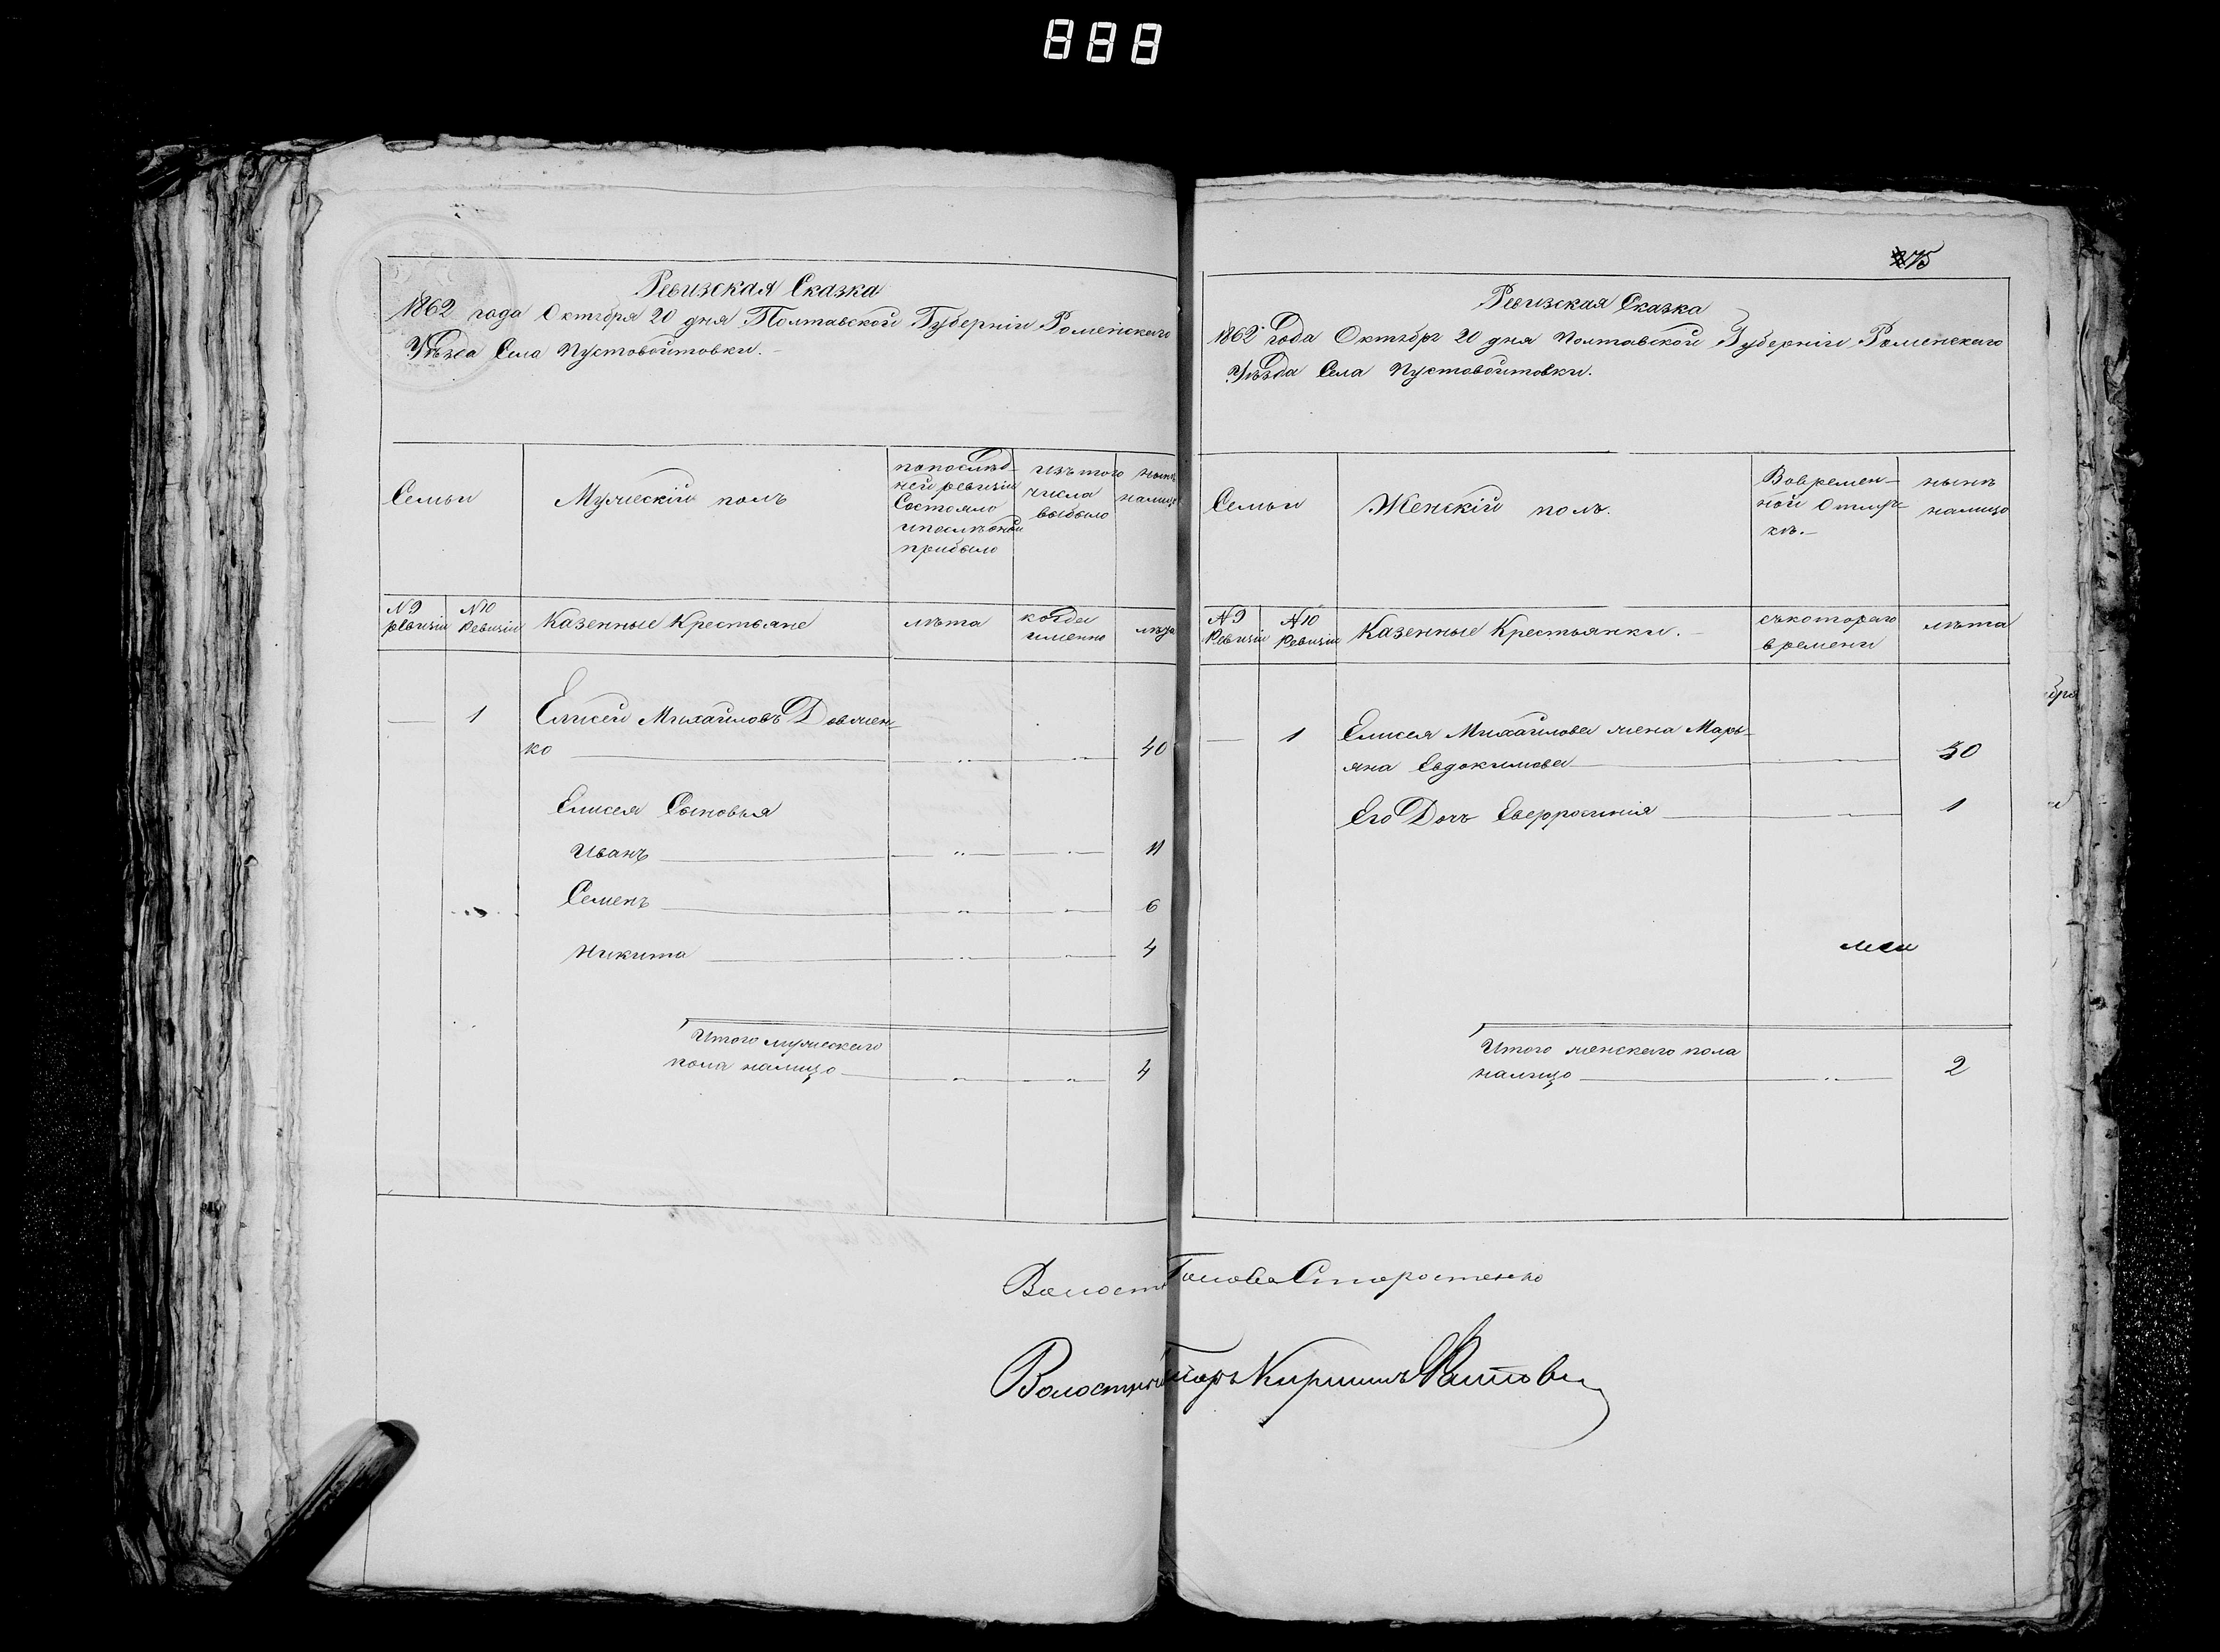 888
Ревизская Сказка
1862 года Октября 20 дня Полтавской Губерніи Роменскаго
Уѣзда Села Пустовойтовки.
Семьи
Мужескій полъ
попослѣд-
ней ревизіи
Состояло
ипослѣ оной
прибыло
изъ того
числа
выбыло
нынѣ
налицо
№ 9
ревизіи
№ 10
Ревизіи
Казенные Крестьяне
лѣта
когда
именно
лѣта
— 1 Елисей Михайловъ Довжен-
ко — „ — „ — 40
Елисея Сыновья
Иванъ — „ — „ — 11
Семенъ — „ — „ — 6
Никита — „ — „ — 4
Итого мужескаго
пола налицо — „ — „ — 4
275
Ревизская Сказка
1862 года Октября 20 дня Полтавской Губерніи Роменскаго
Уѣзда Села Пустовойтовки.
Семьи
Женскій полъ.
Вовремен-
ной Отлуч-
кѣ.
нынѣ
налицо
№ 9
Ревизіи
№ 10
Ревизіи
Казенные Крестьянки.
съкотораго
времени
лѣта
— 1 Елисея Михайлова жена Марь-
яна Евдокимова — „ — 30
Его Дочь Евфросинія — „ — 1
Итого женскаго пола
налицо — „ — 2
Волост Голова Старостенко
Волостный Кирилъ